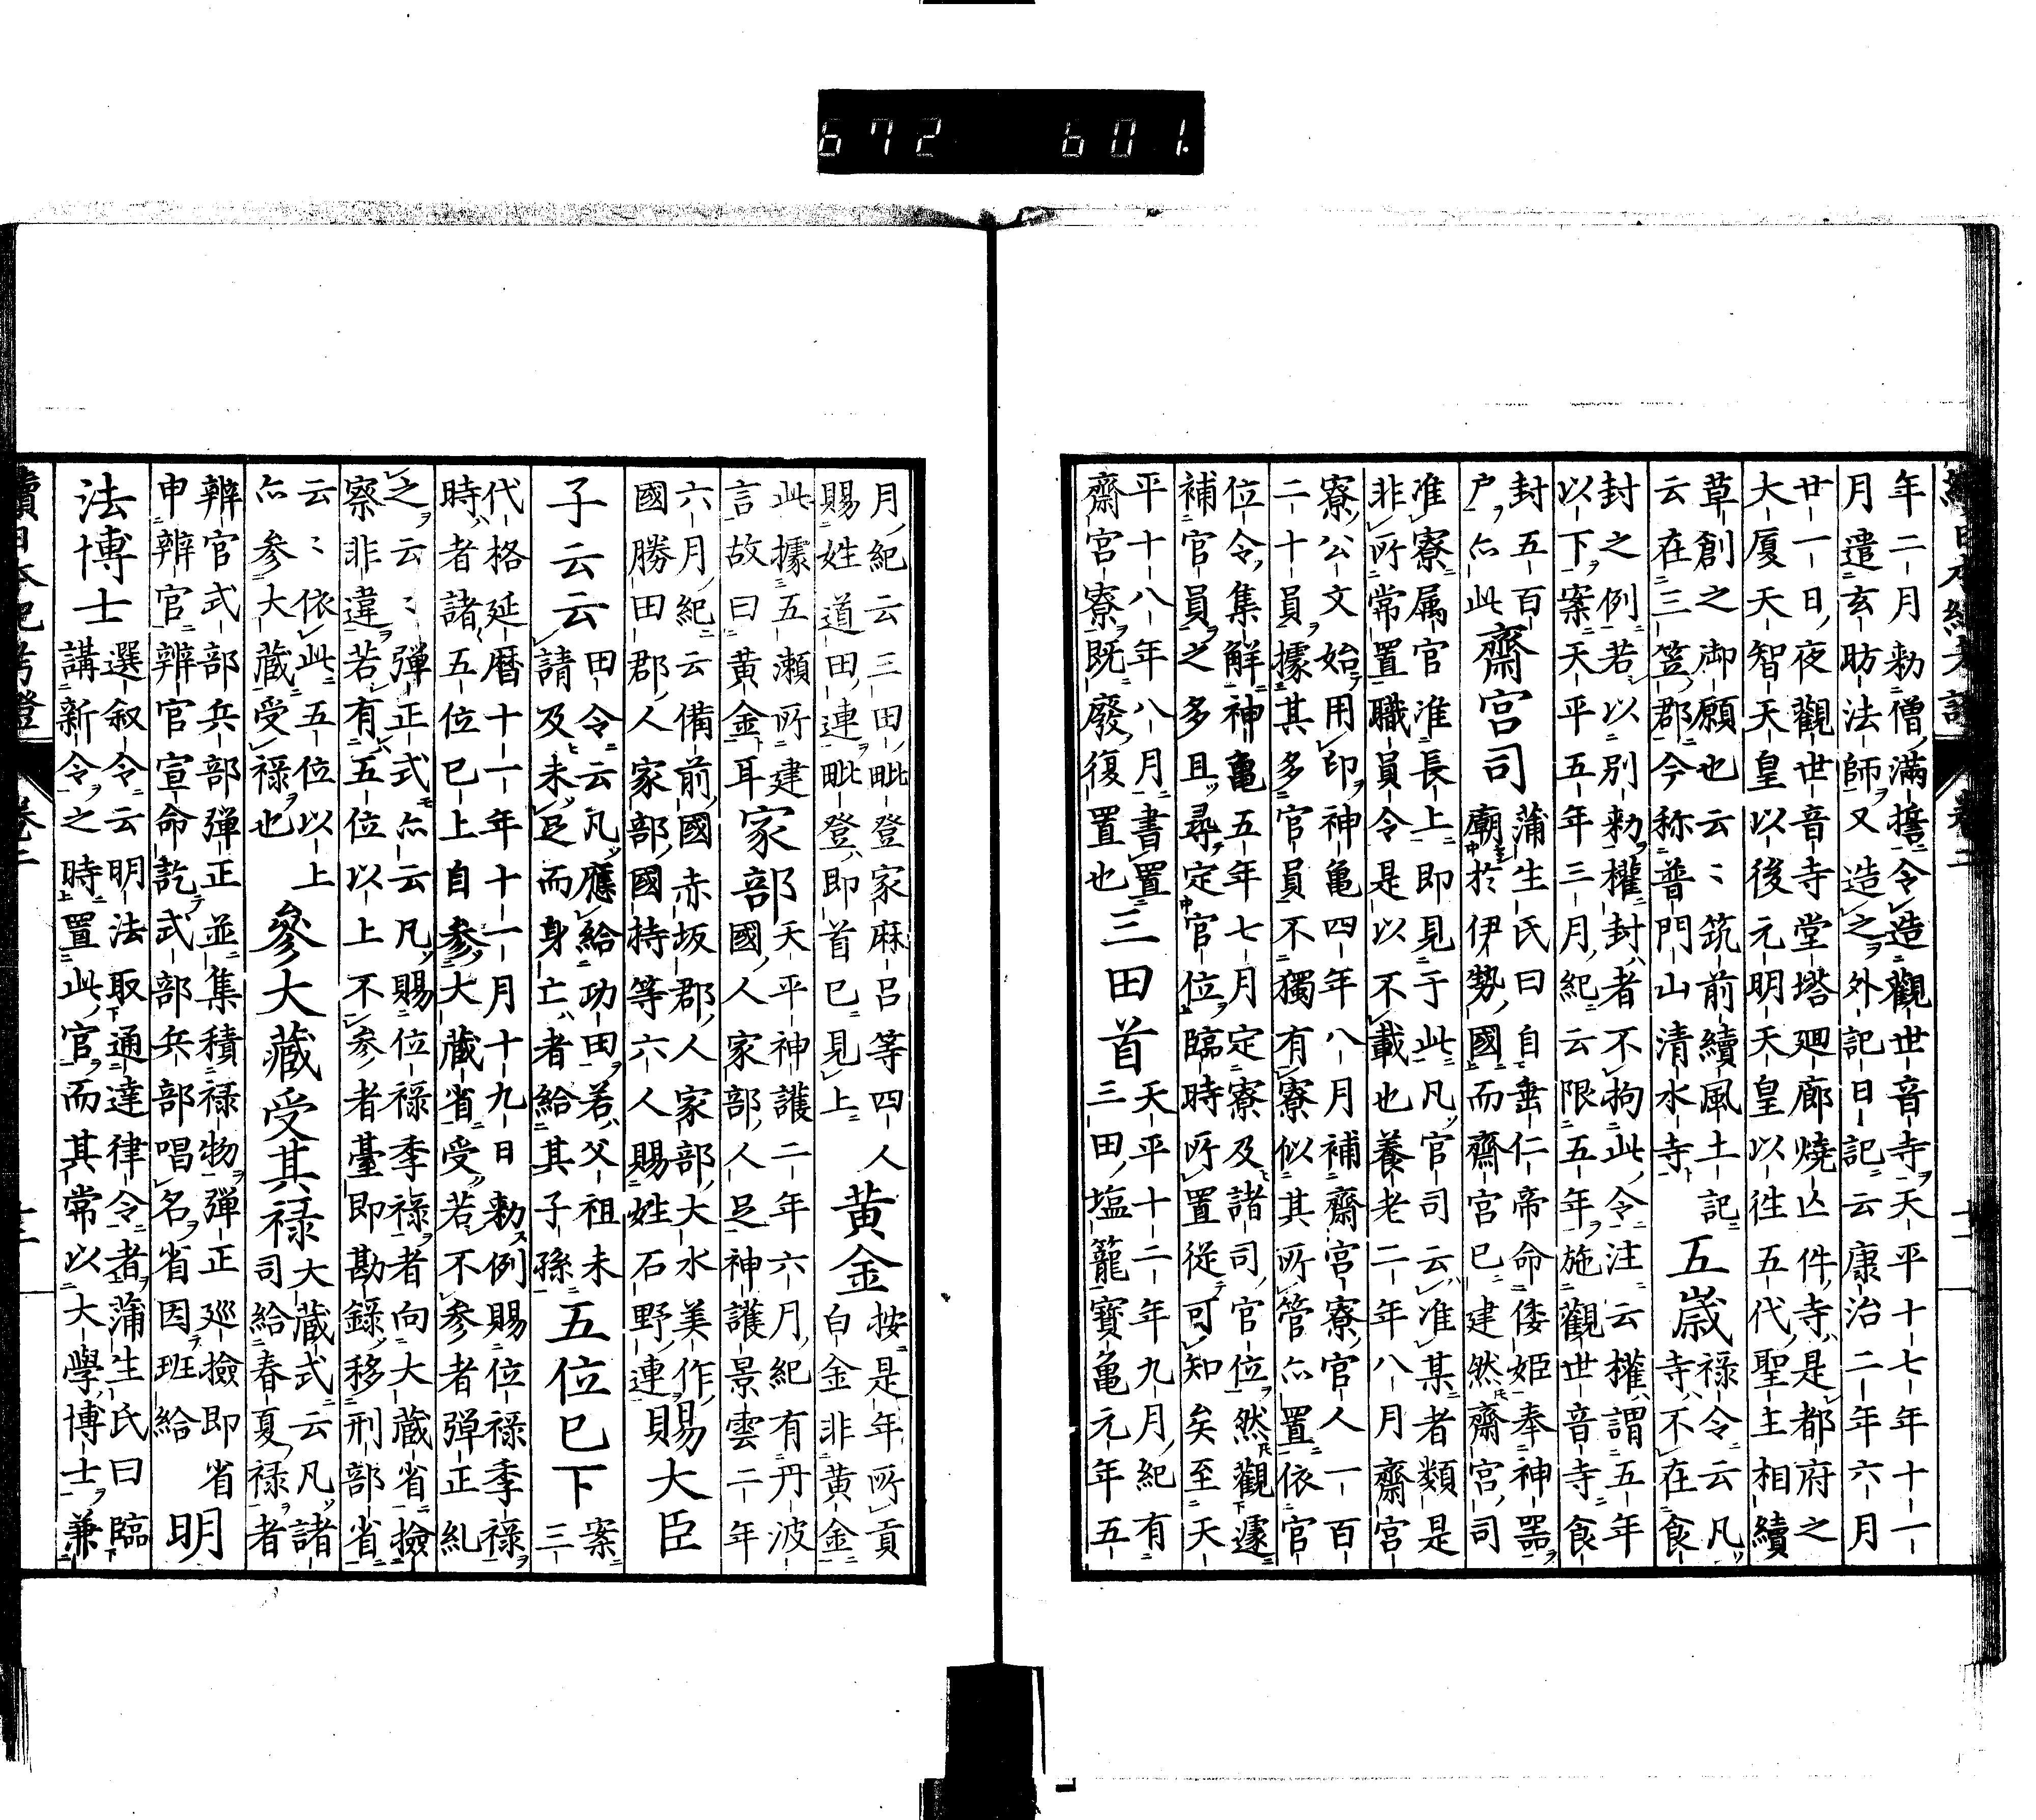 672 601.
年二月勅僧滿誓令造觀世音寺天平十七年十一
月遣玄昉法師又造之外記日記云康治二年六月
廿一日夜觀世音寺堂塔廻廊燒亡件寺是都府之
大厦天智天皇以後元明天皇以往五代聖主相續
草創之御願也云〻筑前續風土記
云在三笠郡今称普門山清水寺
五歳
禄令云凡
寺不在食
封之例若以別勅權封者不拘此令注云權謂五年
以下案天平五年三月紀云限五年施觀世音寺食
封五百
户亦此
齋宮司
蒲生氏曰自垂仁帝命倭姫奉神器
廟於伊勢國而齋宮已建然齋宮司
准寮属官准長上即見于此凡官司云准某者類是
非所常置職員令是以不載也養老二年八月齋宮
寮公文始用印神亀四年八月補齋宮寮官人一百
二十員據其多官員不獨有寮似其所管亦置依官
位令集解神亀五年七月定寮及諸司官位然觀遽
補官員之多且尋定官位臨時所置從可知矣至天
平十八年八月書置
齋宮寮既廢復置也
三田首
天平十二年九月紀有
三田塩籠寶亀元年五
月紀云三田毗登家麻呂等四人
賜姓道田連毗登即首已見上
黄金
按是年所貢
白金非黄金
此據五瀬所建
言故曰黄金耳
家部
天平神護二年六月紀有丹波
國人家部人足神護景雲二年
六月紀云備前國赤坂郡人家部大水美作
國勝田郡人家部國持等六人賜姓石野連
賜大臣
子云云
田令云凡應給功田若父祖未
請及未足而身亡者給其子孫
五位已下
案
三
代格延暦十一年十一月十九日勅例賜位禄季禄
時者諸五位已上自參大蔵省受若不參者弾正糺
之云〻弾正式亦云凡賜位禄季禄者向大蔵省撿
察非違若有五位以上不参者臺即勘錄移刑部省
云〻依此五位以上
亦参大蔵受禄也
參大蔵受其禄
大蔵式云凡諸
司給春夏禄者
辨官式部兵部弾正並集積禄物弾正巡撿即省
申辨官辨官宣命訖式部兵部唱名省因班給
明
法博士
選叙令云明法取通達律令者蒲生氏曰臨
講新令之時置此官而其常以大學博士兼